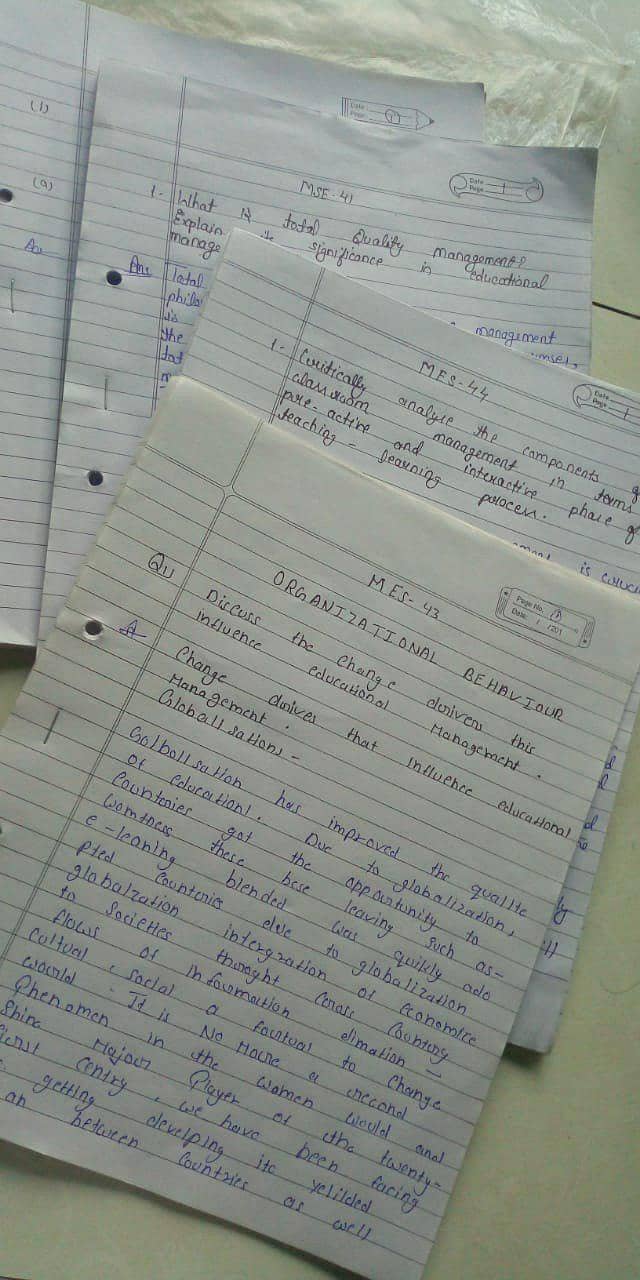 (1)
(a)
Ans
Date
Page 1
MSE-41
Date
Page 1
1- What is total Quality management?
Explain its significance in educational
manage
Ans Total management
philo
is
the
tot
MES-44
Date
Page 1
1- Critically analyse the components of
classroom management in terms
pre-active and interactive phase of
teaching - learning process.
is cruci
MES-43
Page No. 1
Date / /201
ORGANIZATIONAL BEHAVIOUR
Qu Discuss the change drivers this
influence educational Management.
A Change drives that influence educational
Management.
Globallsations -
Golbollsation has improved the qualite
of education. Due to globalization,
Countories got the oppontunity to
womtness these base leaving such as-
e-leaning blended was quikly ado
pted Counteries due to globalization
globalzation intergration of economice
to societies throught Cerass Country
flows of information elimation
Cultual, social a fourtual to change
would. It is No Moure a second
Phenomen in the women would and
Shine Majour Player of the twenty-
first Centry, we have been facing
getting develping its yelilded
an between Countries as well